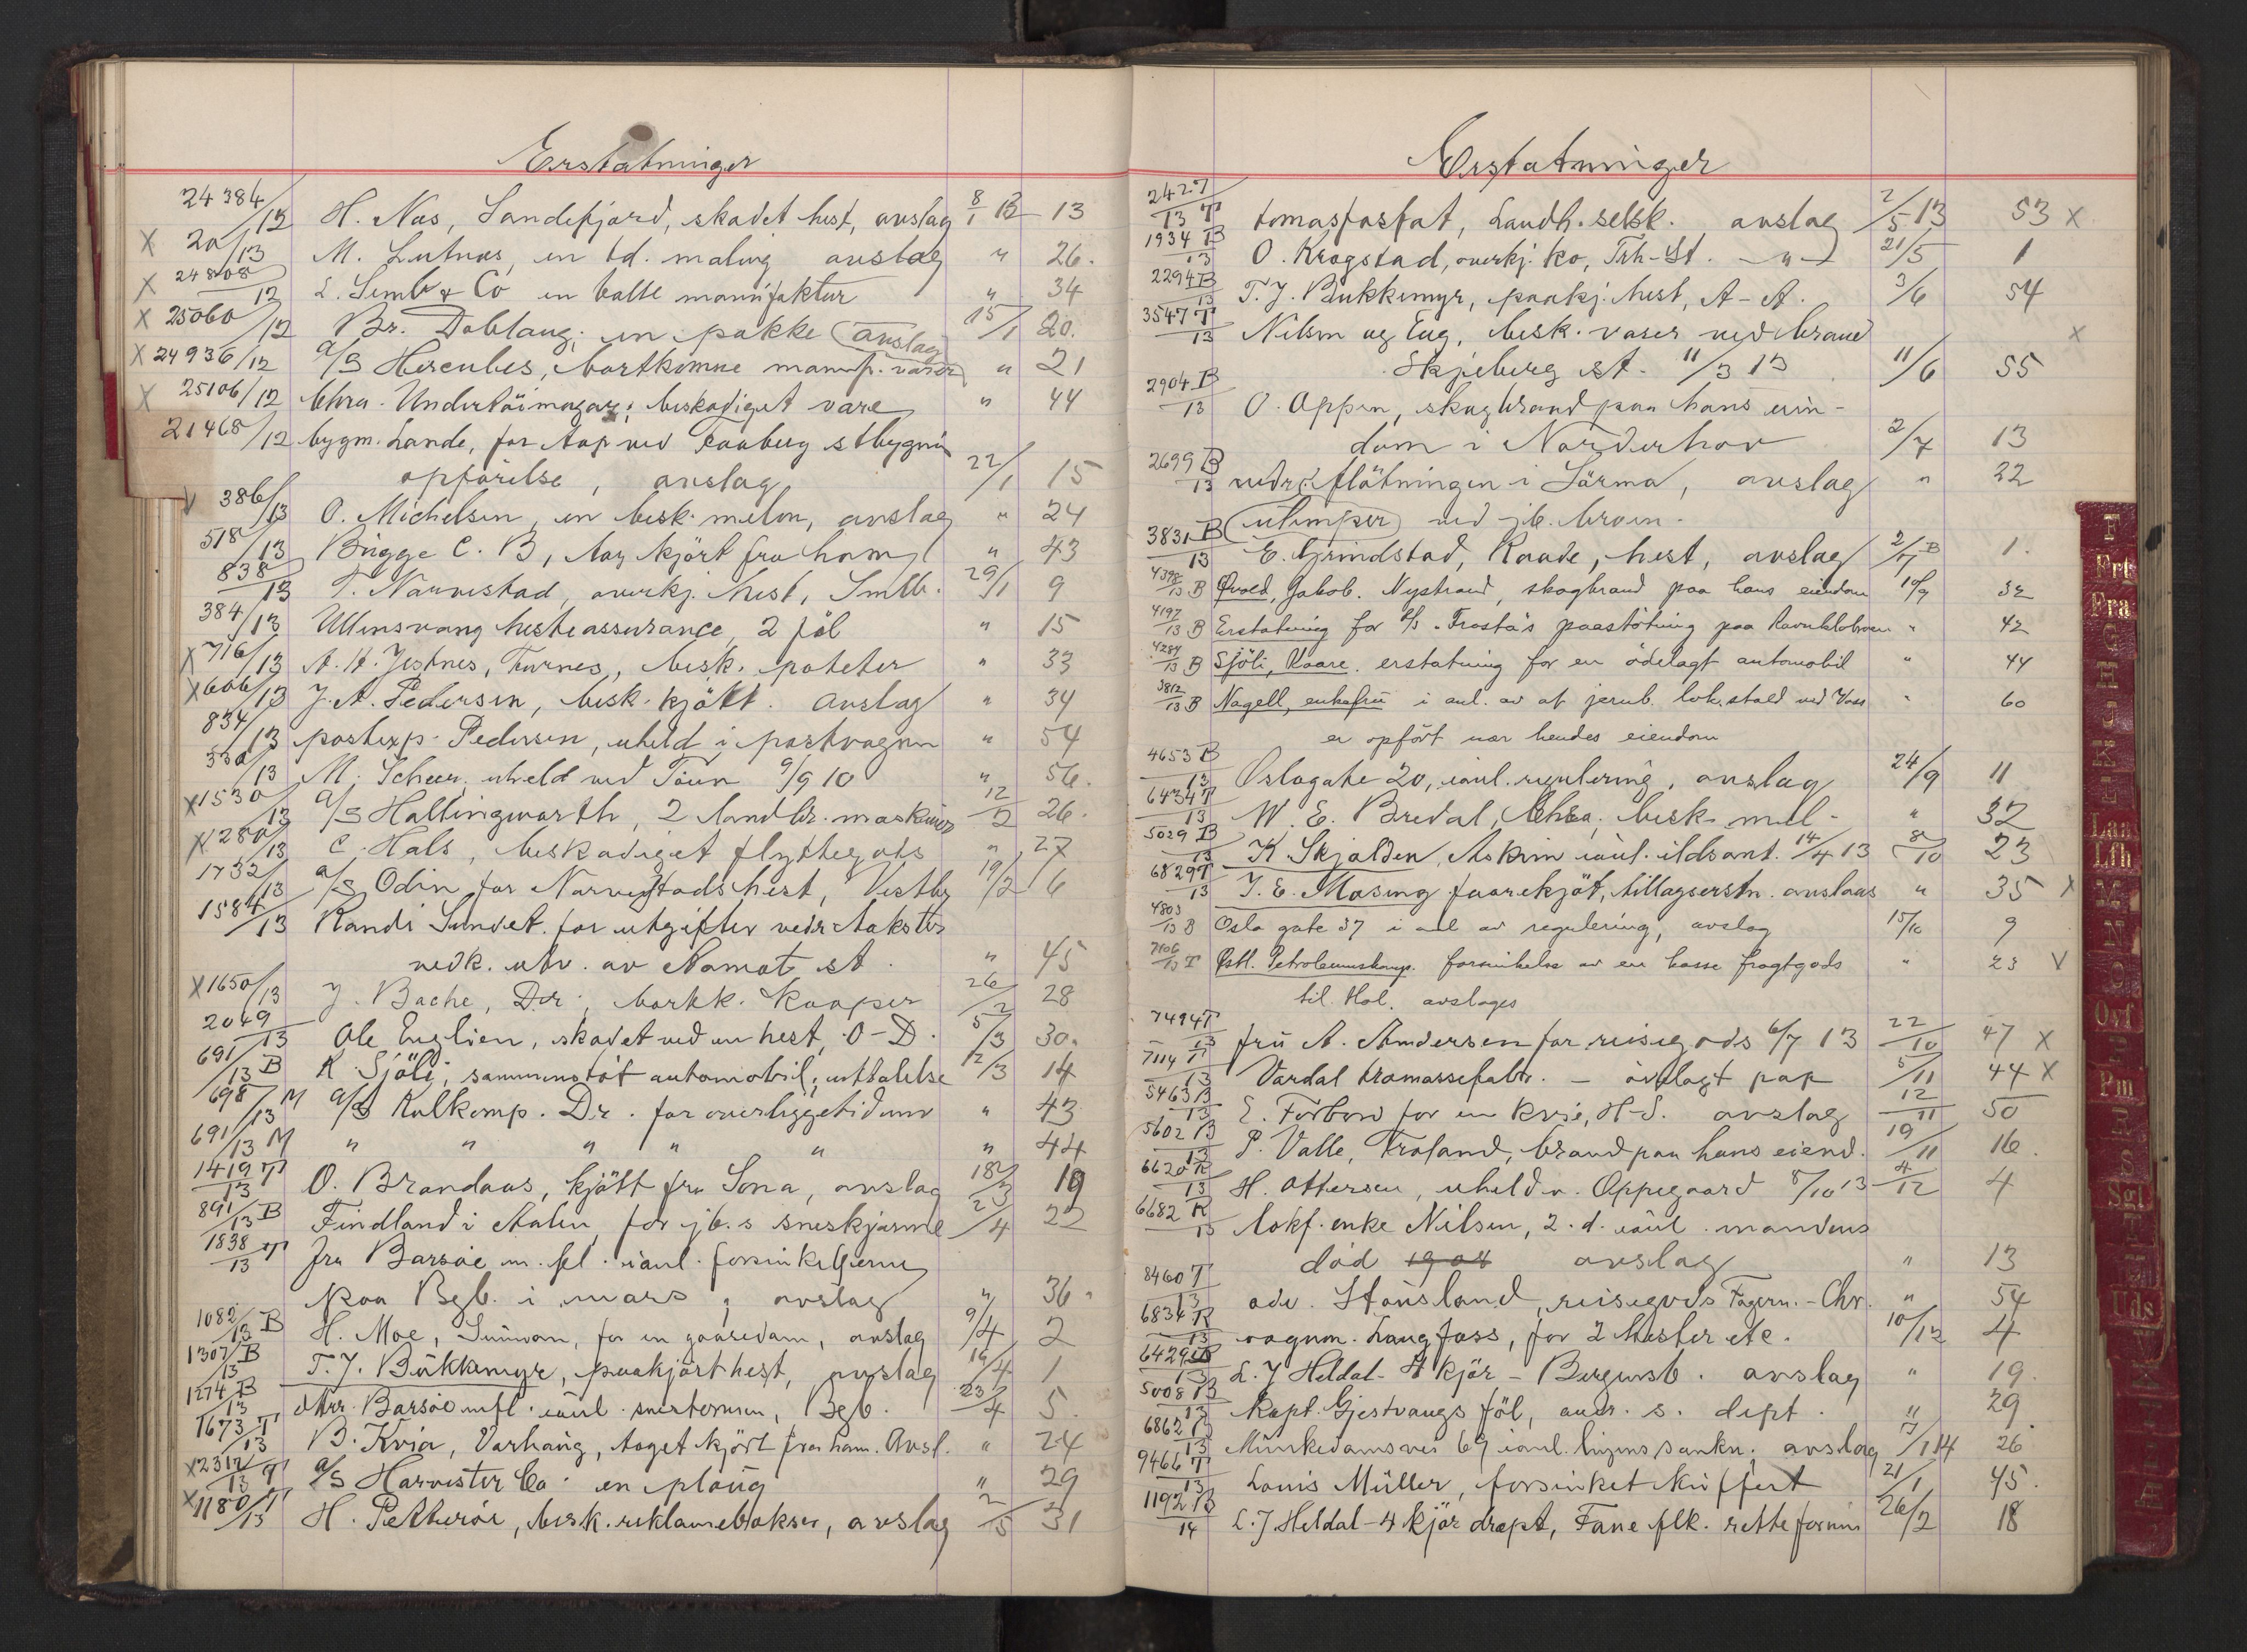 Erstatninger
24384/12 H. Nas, Sandefjord, skadet hest, avslag 8/1 13 13
X 20/13 M. Lutnæs, en td. maling avslag " 26.
X 24808/12 L. Semb & Co en balle manifaktur " 34
X 25060/12 Br. Dobloug, en pakke (avslag) 15/1 20.
X 24936/12 a/s Hercules, bortkomne manuf. varer " 21
X 25106/12 Chra. Undertöimagas; beskadiget vare " 44
21468/12 bygm. Lande, for tap ved Faaberg stbygnin
opförelse, avslag 22/1 15
V 386/13 O. Michelsen, en besk. melon, avslag " 24
518/13 Brigge C. B, tog kjört fra ham " 43
838/13 T. Narvestad, overkj. hest, Smlb. 29/1 9
384/13 Ullensvang hesteassurance, 2 föl " 15
X 716/13 A. H. Jestnes, Furnes, besk. poteter " 33
X 606/13 J. A. Pedersen, besk. kjött. avslag " 34
834/13 postexp. Pedersen, uheld i postvognen " 54
330/13 M. Scheer, uheld ved Töien 9/9 10 " 56.
X 1530/13 a/s Hallingwarth, 2 landbr. maskiner 12/2 26.
X 1280/13 C. Hals, beskadiget flyttegods " 27
1732/13 a/s Odin for Narvestads hest, Vestby 19/2 6
1584/13 Randi Sundet. for utgifter vedr takster
vedk. utv. av Namot st. " 45
X 1650/13 J. Bache, Dr., bortk. kaaper 26/2 28
2049/13 Ole Englien, skadet ved en hest, O-D. 5/3 30.
691/13 B K Sjöli, sammenstöt automobil, uttalelse 12/3 14
698/13 M a/s Kulkomp. Dr. for overliggetid " 43
691/13 M " " " " " " 44
1419/13 T O. Brandaas, kjött fra Sona, avslag 18/3 19
891/13 B Findland i Aalen, for jb.s sneskjærme 2/4 22
1838/13 T fru Barsöe m. fl. i anl. forsinkelserne
paa Bgb. i mars, avslag " 36.
1082/13 B H. Moe, Sunnan, for en gaasedam, avslag 9/4 2
1307/13 B T. J. Bukkemyr, paakjört hest, avslag 16/4 1
1274/13 B Arr. Barsöe mfl. i anl. snestormen, Bgb. 23/4 5.
1673/13 T B. Kvia, Varhaug, toget kjört fra ham. Avsl. " 24
X 2312/13 T a/s Harvester Co. en ploug " 29
X 1180/13 T H. Petteröe, besk. reklamebokser, avslag 2/5 31
Erstatninger
2427/13 T tomasfosfat, Landh. selsk. avslag 2/5 13 53 X
1934/13 B O. Krogstad, overkj. ko, Trh-St. - " - 21/5 1
2294/13 B T. J. Bukkemyr, paakj. hest, A-A. 3/6 54
3547/13 T Nilsen og Eng, besk. varer ved brand X
Skjeberg st. 11/3 13 11/6 55
2904/13 B O. Oppen, skogbrand paa hans eien-
dom i Norderhov 2/7 13
2699/13 B vedr. flötningen i Särna, avslag " 22
(ulemper) ved jb. broen.
3831/13 B E. Grindstad, Raade, hest, avslag 2/7 B 1.
4398/13 B Qvaed, Jakob. Nystrand, skogbrand paa hans eiendom 10/9 32
4197/13 B Erstatning for D/S. Frosta's paastötning paa Ravnklobroen " 42
4284/13 B Sjöli, Kaare. erstatning for en ödelagt automobil " 44
3812/13 B Nagell, enkefru i anl. av at jernb. lok.stald ved Voss " 60
er opfört nær hendes eiendom
4653/13 B Oslogate 20, ianl. regulering, avslag 24/9 11
6434/13 T W. E. Bredal, Chra, besk. mel. " 32
5029/13 B K. Skjolden, Askim ianl. ildsant. 14/4 13 8/10 23
6829/13 T J. E. Mosing faarekjöt, tillagserstn. avslaas " 35 X
4803/13 B Oslo gate 37 i anl av regulering, avslag 15/10 9
7106/13 T Östl. Petroleumskomp. forsinkelse av en kasse fragtgods " 23 V
til Hol. avslages
7494/13 T fru A. Andersen for reisegods 6/7 13 22/10 47 X
7114/13 T Vardal tremassefabr. - ödelagt pap 5/11 44 X
5463/13 B E. Forbord for en kvie, H-S. avslag 12/11 50
5602/13 B P. Valle, Froland, brand paa hans eiend. 19/11 16.
6620/13 R H. Ottersen, uheld v. Oppegaard 8/10 13 4/12 4
6682/13 R lokf. enke Nilsen, 2. d. ianl. mandens
död 1904 avslag " 13
8460/13 T adv. Stousland, reisegods Fagern. - Chr. " 54
6834/13 R vognm. Langfoss, for 2 hester etc. 10/12 4
6429/13 B L. J Heldal - 4 kjör - Bergensb. avslag " 19.
5008/13 B Kapt. Gjestvangs föl, andr. s. dept. " 29
6862/13 B Munkedamsvei 69 ianl. liggens sænkn. avslag 7/1 14 26
9466/13 T Louis Müller, forsinket kuffert 21/1 45.
1192/14 B L. J Heldal - 4 kjör dræpt, Fane flk. rette formin 26/2 18
T
Frt
Fra
G
H
Lan
Lfh
M
N
O
Ovf
P
Pm
R
S
Sgl
T
Uds